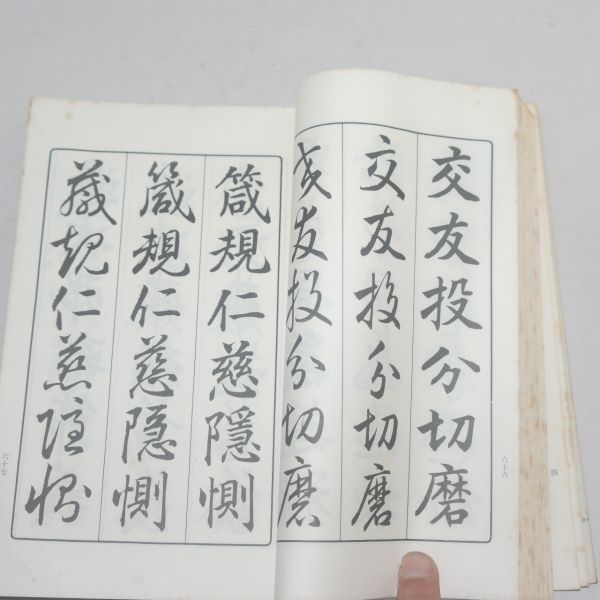 交友投分切磨
交友投分切磨
交友投分切磨
六十六
箴規仁慈隱惻
箴規仁慈隠惻
箴規仁慈隱惻
六十七
四